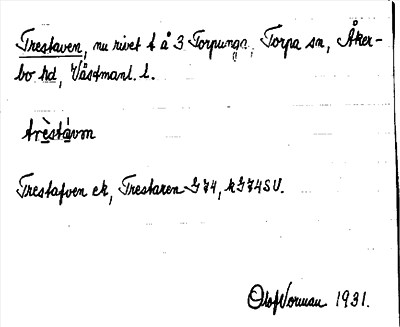 Trestaven, nu rivet t å 3 Torpunga, Torpa sn, Åker-
bo hd, Västmanl. l.
trèstàvən
Trestafven ek, Trestaren G74, kG74SV.
Olof Vorman 1931.